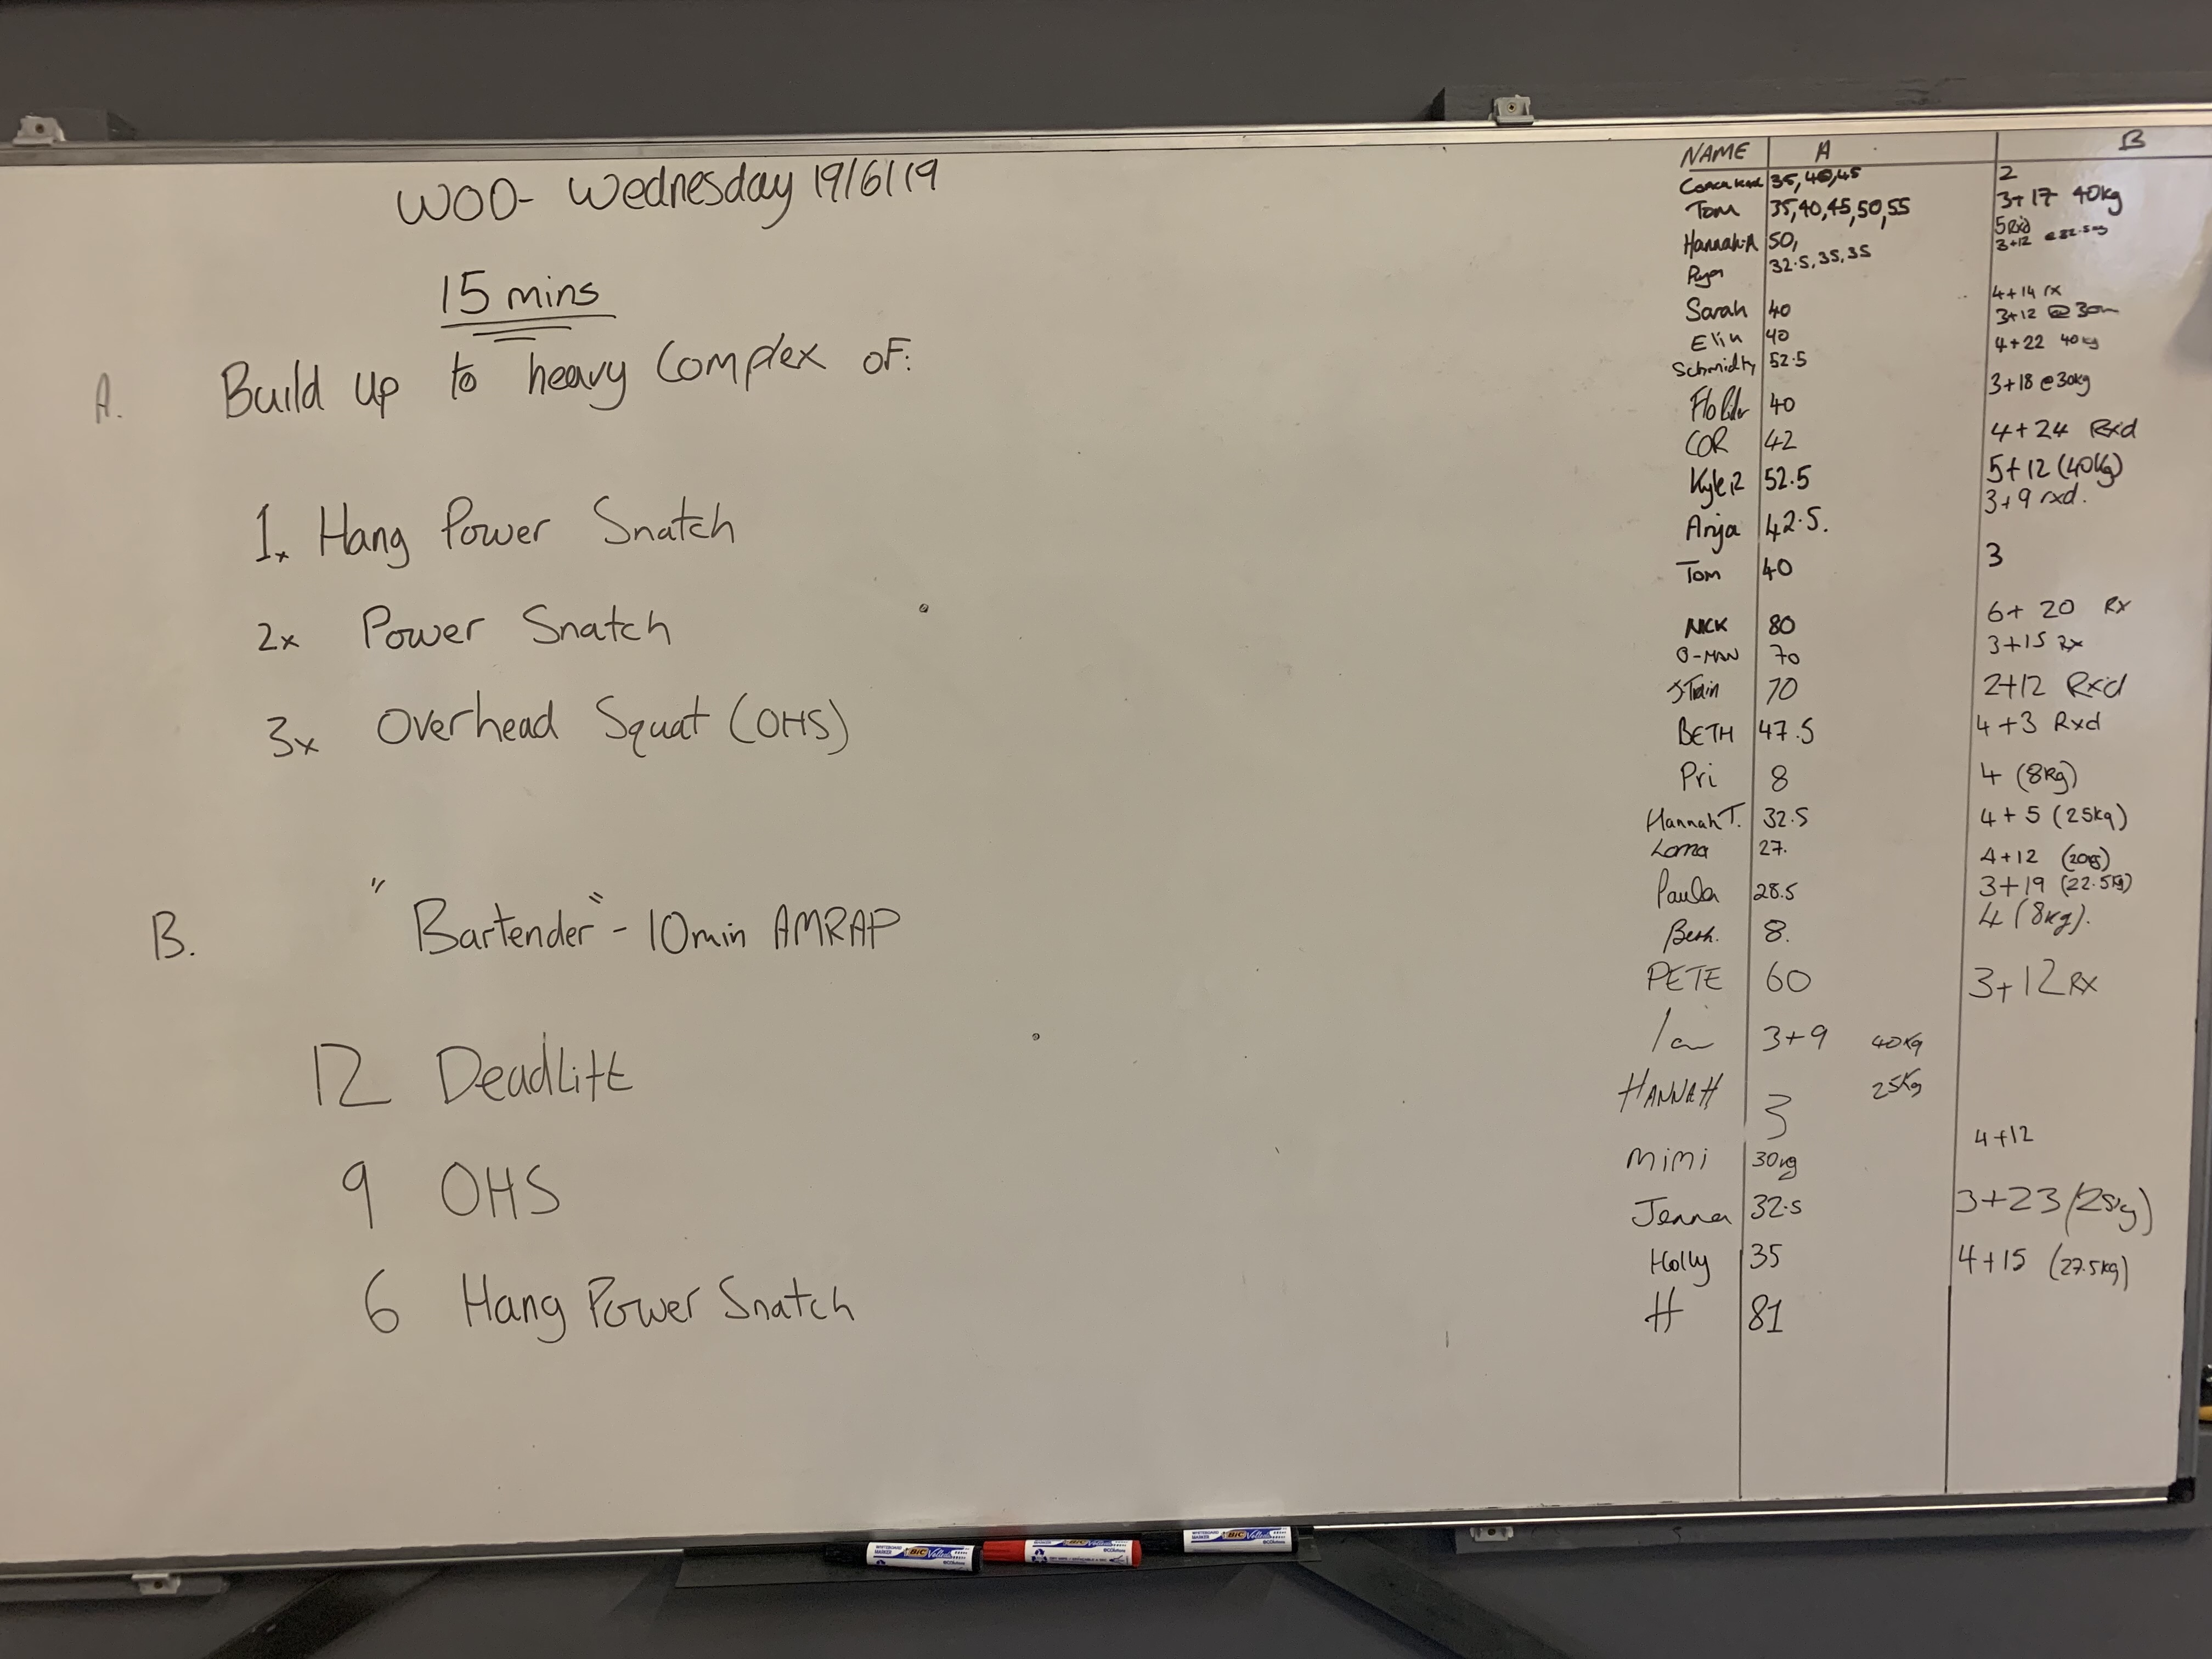 WOD- Wednesday 19/6/19
15 mins
A. Build up to heavy Complex of:
1x Hang Power Snatch
2x Power Snatch
3x Overhead Squat (OHS)
B. "Bartender" - 10min AMRAP
12 Deadlift
9 OHS
6 Hang Power Snatch
NAME A B
35, 40, 45 2
Tom 35, 40, 45, 50, 55 3+17 40kg
Hannah.A 50, 5 Rxd
32.5, 35, 35 3+12
Sarah 40 4+14 rx
Elin 40 3+12 @
Schmidty 52.5 4+22 40kg
Flo 40 3+18 @ 30kg
COR 42 4+24 Rxd
Kyle 52.5 5+12 (40kg)
Anja 42.5. 3+9 rxd.
Tom 40 3
NICK 80 6+ 20 Rx
O-MAN 70 3+15 Rx
J-Train 70 2+12 Rxd
BETH 47.5 4+3 Rxd
Pri 8 4 (8kg)
Hannah T. 32.5 4+5 (25kg)
Lorna 27. 4+12 (20kg)
Paula 28.5 3+19 (22.5kg)
Beth. 8. 4 (8kg).
PETE 60 3+12 Rx
Ian 3+9 40kg
HANNAH 3 25kg
Mimi 30kg 4+12
Jenna 32.5 3+23 (25kg)
Holly 35 4+15 (27.5kg)
H 81
BIC Velleda
BIC Velleda